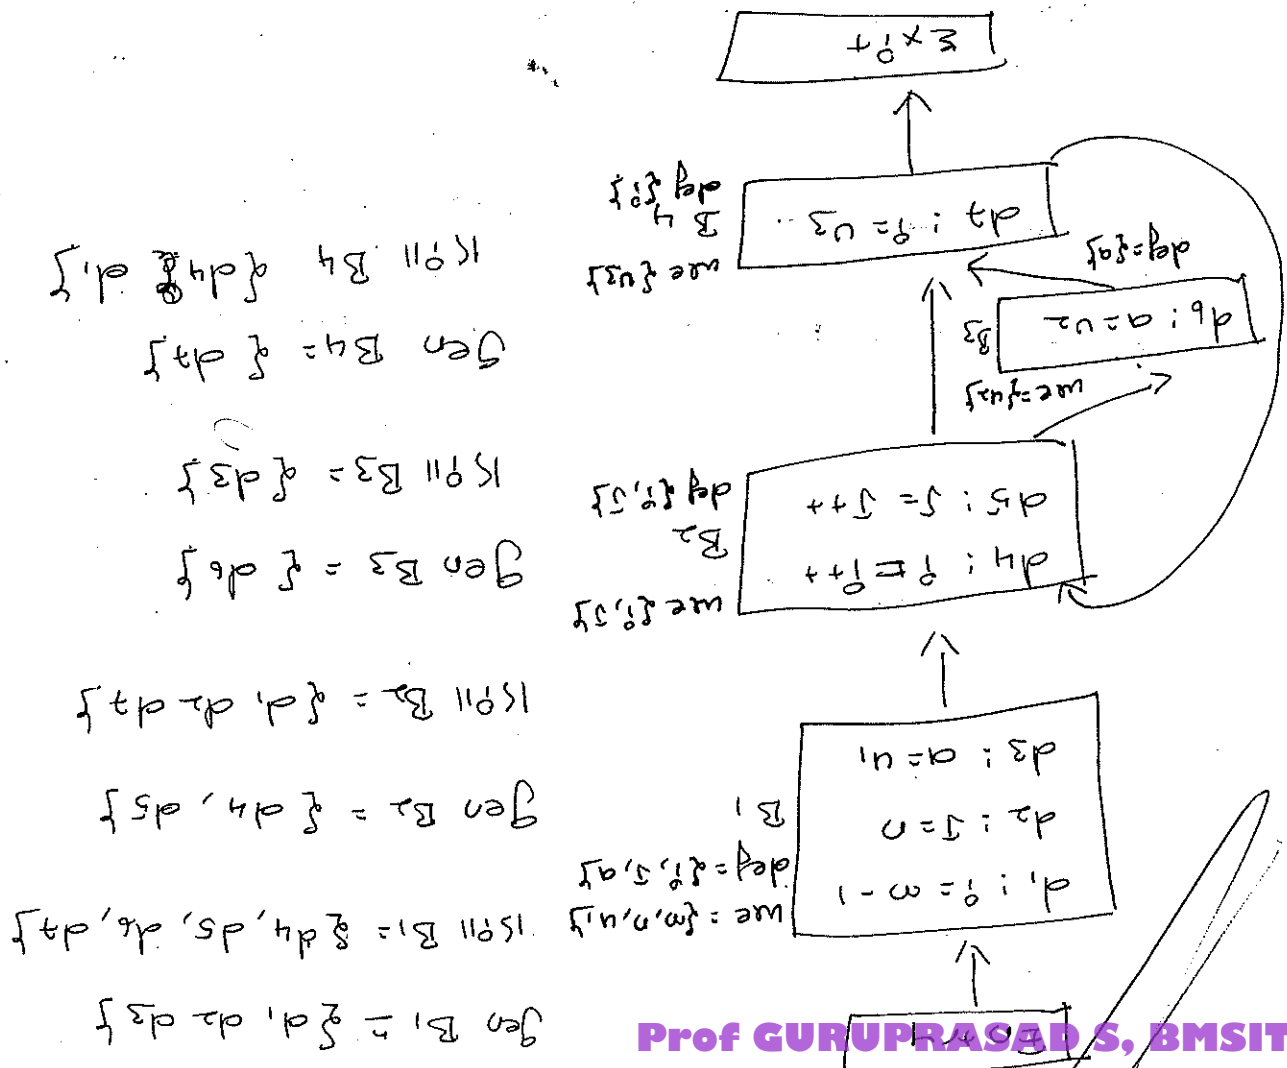 Entry
d1 : i = m - 1
d2 : J = n
d3 : a = u1
use = {m, n, u1}
def = {i, J, a}
B1
d4 : i = i++
d5 : J = J++
use {i, J}
B2
def {i, J}
use = {u2}
d6 : a = u2
B3
def = {a}
use {u3}
d7 : i = u3
B4
def {i}
Exit
gen B1 = {d1 d2 d3}
kill B1 = {d4, d5, d6, d7}
gen B2 = {d4, d5}
kill B2 = {d1 d2 d7}
gen B3 = {d6}
kill B3 = {d3}
gen B4 = {d7}
kill B4 {d4 d1}
Prof GURUPRASAD S, BMSIT